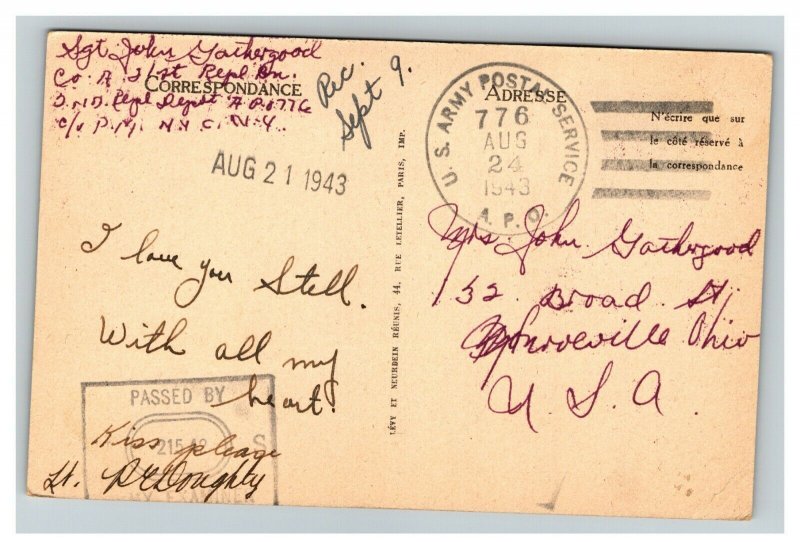 Sgt John Gathergood
Co A 21st Repl Bn.
Repl Depot A.P.O 776
c/o P.M. N.Y.C. N.Y.
CORRESPONDANCE
Rec.
Sept 9.
AUG 21 1943
I love you Stell.
With all my
heart.
Kiss please
PASSED BY
S
Lt. Doughty
LÉVY ET NEURDEIN RÉUNIS, 44, RUE LETELLIER, PARIS, IMP.
ADRESSE
U. S. ARMY POSTAL SERVICE
776
AUG
24
1943
A. P. O.
N'écrire que sur
le côté réservé à
la correspondance
Mrs John Gathergood
32 Broad St,
Monroeville Ohio
U. S. A.